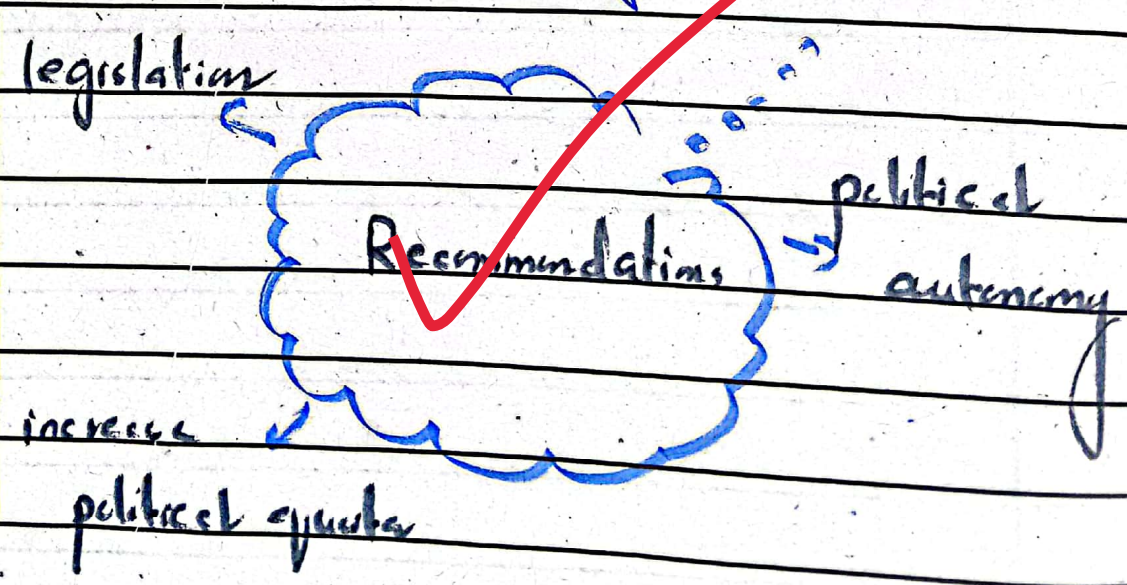 legislation
Recommendations
political
autonomy
increase
political quota